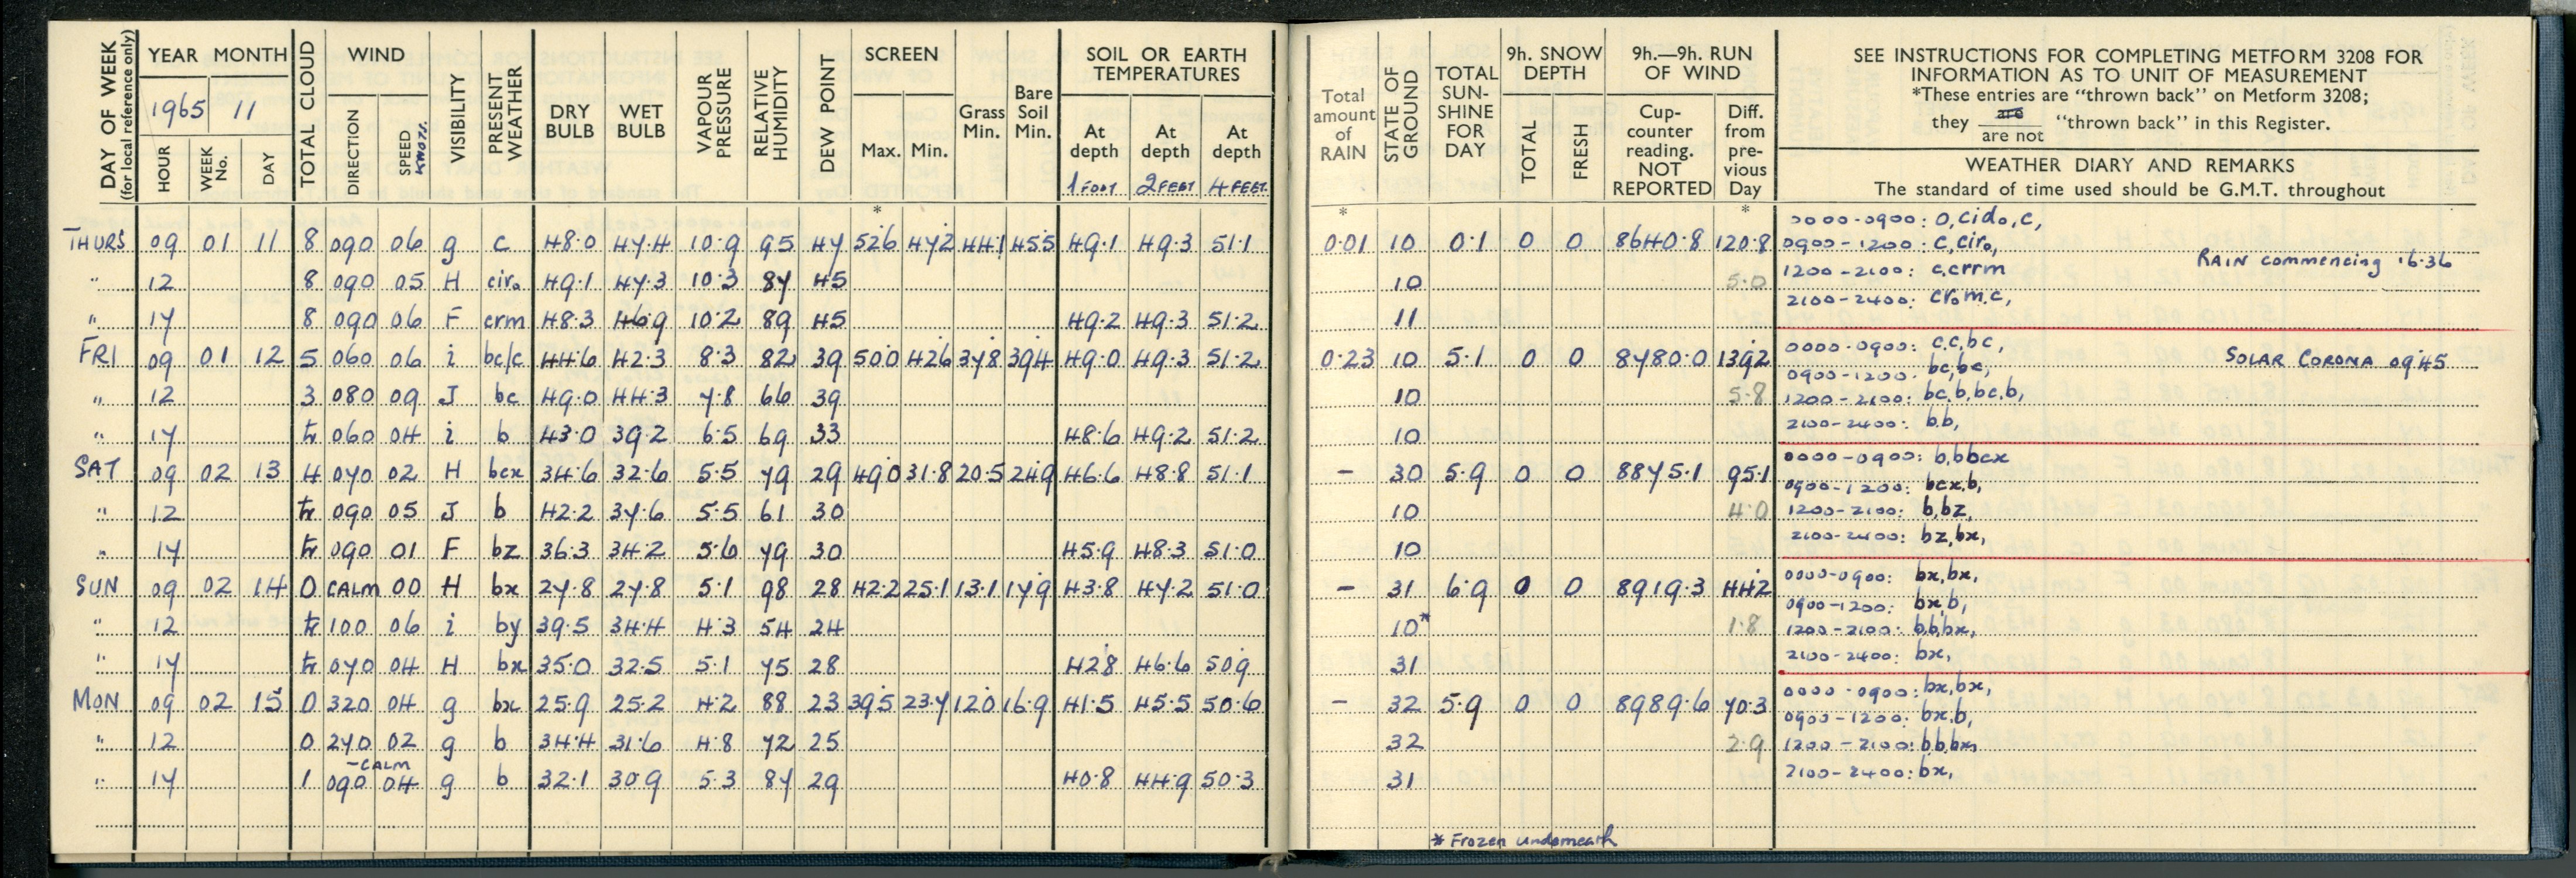 DAY OF WEEK (for local reference only) YEAR MONTH TOTAL CLOUD WIND VISIBILITY PRESENT WEATHER DRY BULB WET BULB VAPOUR PRESSURE RELATIVE HUMIDITY DEW POINT SCREEN Grass Min. Bare Soil Min. SOIL OR EARTH TEMPERATURES
1965 11
HOUR WEEK No. DAY DIRECTION SPEED KNOTS. Max. Min. At depth 1 FOOT At depth 2 FEET At depth 4 FEET
*
THURS 09 01 11 8 090 06 g c 48.0 47.4 10.9 95 47 52.6 47.2 44.1 45.5 49.1 49.3 51.1
" 12 8 090 05 H ciro 49.1 47.3 10.3 87 45
" 17 8 090 06 F crm 48.3 46.9 10.2 89 45 49.2 49.3 51.2
FRI 09 01 12 5 060 06 i bc/c 44.6 42.3 8.3 82 39 50.0 42.6 37.8 39.4 49.0 49.3 51.2
" 12 3 080 09 J bc 49.0 44.3 7.8 66 39
" 17 tr 060 04 i b 43.0 39.2 6.5 69 33 48.6 49.2 51.2
SAT 09 02 13 4 070 02 H bcx 34.6 32.6 5.5 79 29 49.0 31.8 20.5 24.9 46.6 48.8 51.1
" 12 tr 090 05 J b 42.2 37.6 5.5 61 30
" 17 tr 090 01 F bz 36.3 34.2 5.6 79 30 45.9 48.3 51.0
SUN 09 02 14 0 CALM 00 H bx 27.8 27.8 5.1 98 28 42.2 25.1 13.1 17.9 43.8 47.2 51.0
" 12 tr 100 06 i by 39.5 34.4 4.3 54 24
" 17 tr 070 04 H bx 35.0 32.5 5.1 75 28 42.8 46.6 50.9
MON 09 02 15 0 320 04 g bx 25.9 25.2 4.2 88 23 39.5 23.7 12.0 16.9 41.5 45.5 50.6
" 12 0 270 02 g b 34.4 31.6 4.8 72 25
-CALM
" 17 1 090 04 g b 32.1 30.9 5.3 87 29 40.8 44.9 50.3
Total amount of RAIN STATE OF GROUND TOTAL SUN-SHINE FOR DAY 9h. SNOW DEPTH 9h.—9h. RUN OF WIND
TOTAL FRESH Cup-counter reading. NOT REPORTED Diff. from pre-vious Day
SEE INSTRUCTIONS FOR COMPLETING METFORM 3208 FOR
INFORMATION AS TO UNIT OF MEASUREMENT
*These entries are "thrown back" on Metform 3208;
they are / are not "thrown back" in this Register.
WEATHER DIARY AND REMARKS
The standard of time used should be G.M.T. throughout
* *
0.01 10 0.1 0 0 8640.8 120.8
10 5.0
11
0.23 10 5.1 0 0 8780.0 139.2
10 5.8
10
- 30 5.9 0 0 8875.1 95.1
10 4.0
10
- 31 6.9 0 0 8919.3 44.2
10* 1.8
31
- 32 5.9 0 0 8989.6 70.3
32 2.9
31
* Frozen underneath
0000-0900: O,cido,c,
0900-1200: c,ciro,
RAIN commencing 16.36
1200-2100: c,crrm
2100-2400: crom,c,
0000-0900: c,c,bc,
SOLAR CORONA 09.45
0900-1200: bc,bc,
1200-2100: bc,b,bc,b,
2100-2400: b,b,
0000-0900: b,bbcx
0900-1200: bcx,b,
1200-2100: b,bz,
2100-2400: bz,bx,
0000-0900: bx,bx,
0900-1200: bx,b,
1200-2100: b,b,bx,
2100-2400: bx,
0000-0900: bx,bx,
0900-1200: bx,b,
1200-2100: b,b,bx,
2100-2400: bx,